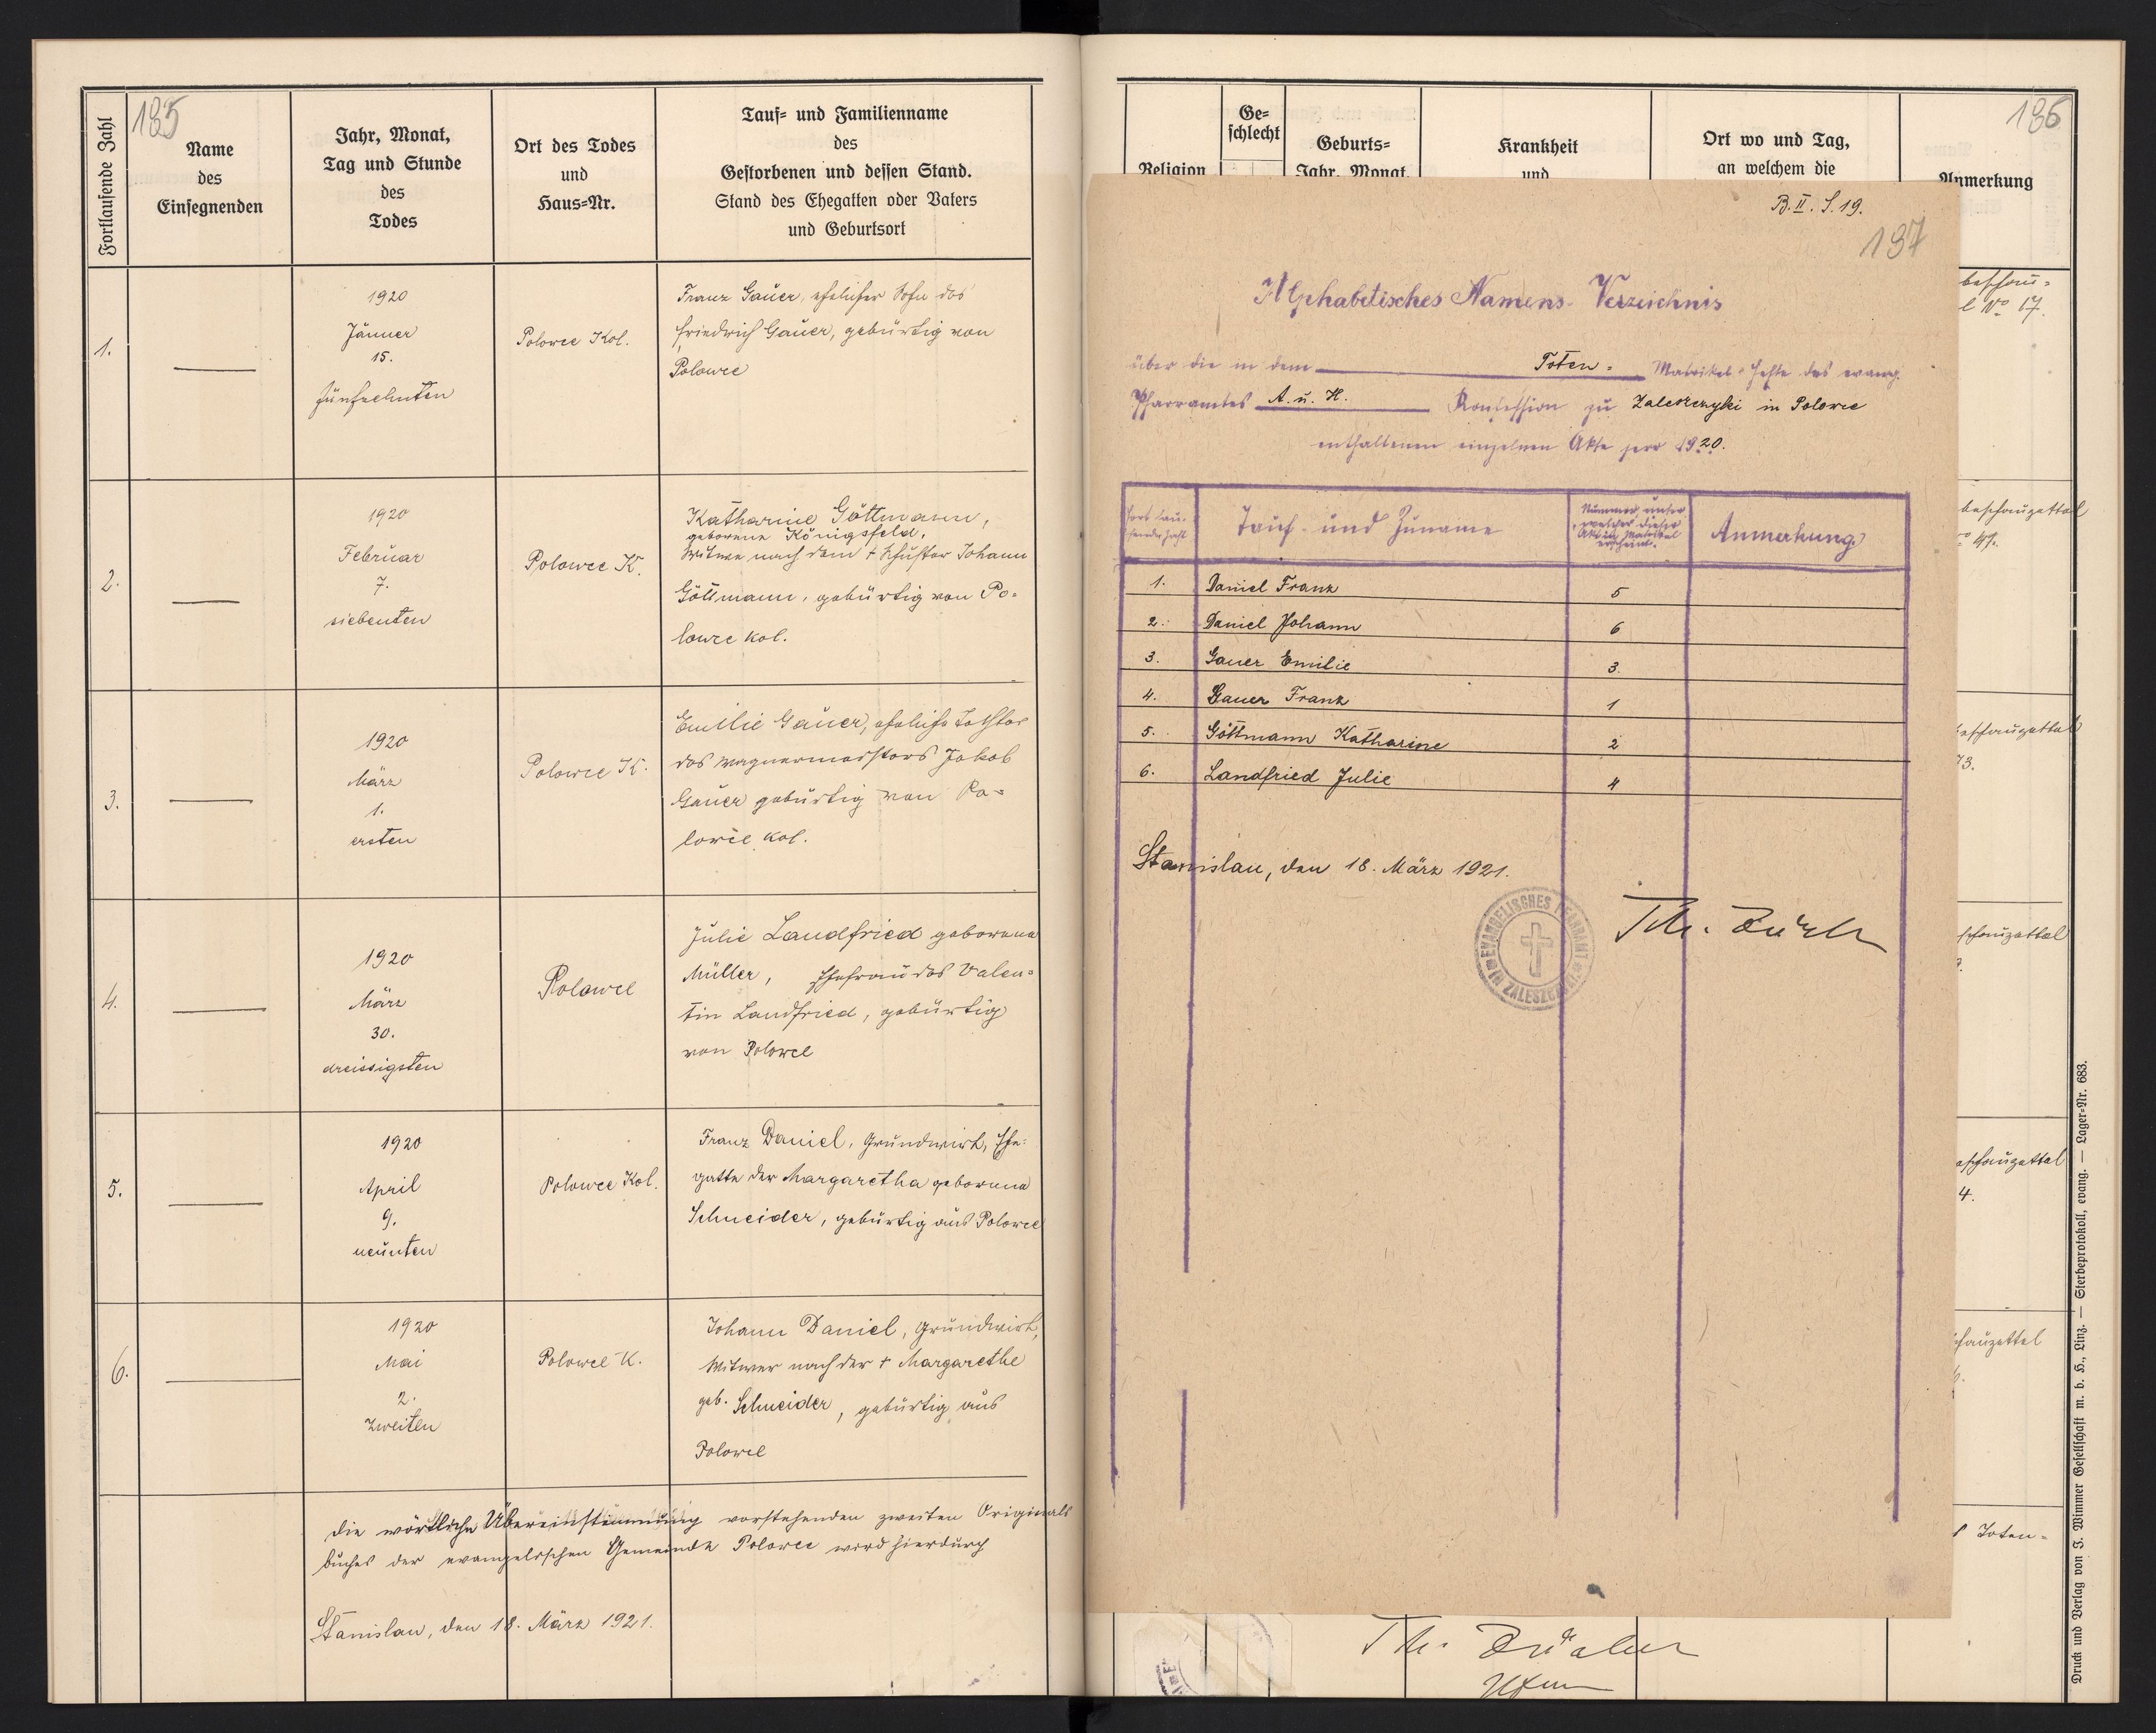 185
Fortlaufende Zahl
Name
des
Einsegnenden
Jahr, Monat,
Tag und Stunde
des
Todes
Ort des Todes
und
Haus-Nr.
Tauf- und Familienname
des
Gestorbenen und dessen Stand.
Stand des Ehegatten oder Vaters
und Geburtsort
1.
1920
Jänner
15.
fünfzehnten
Polowce Kol.
Franz Gauer, ehelicher Sohn des
Friedrich Gauer, gebürtig von
Polowce
2.
1920
Februar
7.
siebenten
Polowce K.
Katharine Göttmann,
geborene Königsfeld,
Witwe nach dem + Schuster Johann
Göttmann, gebürtig von Po-
lowce Kol.
3.
1920
März
1.
ersten
Polowce K.
Emilie Gauer, eheliche Tochter
des Wagnermeisters Jakob
Gauer gebürtig von Po-
lowce Kol.
4.
1920
März
30.
dreissigsten
Polowce
Julie Landfried geborene
Müller, Ehefrau des Valen-
tin Landfried, gebürtig
von Polowce
5.
1920
April
9.
neunten
Polowce Kol.
Franz Daniel, Grundwirt, Ehe-
gatte der Margaretha geborene
Schneider, gebürtig aus Polowce
6.
1920
Mai
2.
zweiten
Polowce K.
Johann Daniel, Grundwirt,
Witwer nach der + Margarethe
geb. Schneider, gebürtig aus
Polowce
die wörtliche Übereinstimmung vorstehenden zweiten Originals
buches der evangelischen Gemeinde Polowce wird hierdurch
Stanislau, den 18. März 1921.
186
Religion
Ge-
schlecht
Geburts-
Jahr, Monat,
Krankheit
und
Ort wo und Tag,
an welchem die
Anmerkung
B. II. S. 19.
197
Alphabetisches Namens-Verzeichnis
über die in dem Toten- Matrikel-Hefte des evang.
Pfarramtes A. u. H. Konfession zu Zaleszczyki in Polowce
enthaltenen einzelnen Akte pro 1920.
Fortlau-
fende Zahl
Tauf- und Zuname
Nummer unter
welcher dieser
Akt im Matrikel
erscheint.
Anmerkung
1. Daniel Franz 5
2. Daniel Johann 6
3. Gauer Emilie 3.
4. Gauer Franz 1
5. Göttmann Katharine 2
6. Landfried Julie 4
Stanislau, den 18. März 1921.
EVANGELISCHES PFARRAMT
IN ZALESZCZYKI
beschau-
l No 17.
beschauzettel
49.
beschauzettel
73.
schauzettel
eschauzettel
4.
schauzettel
Toten-
Druck und Verlag von J. Wimmer Gesellschaft m. b. H., Linz. — Sterbeprotokoll, evang. — Lager-Nr. 683.